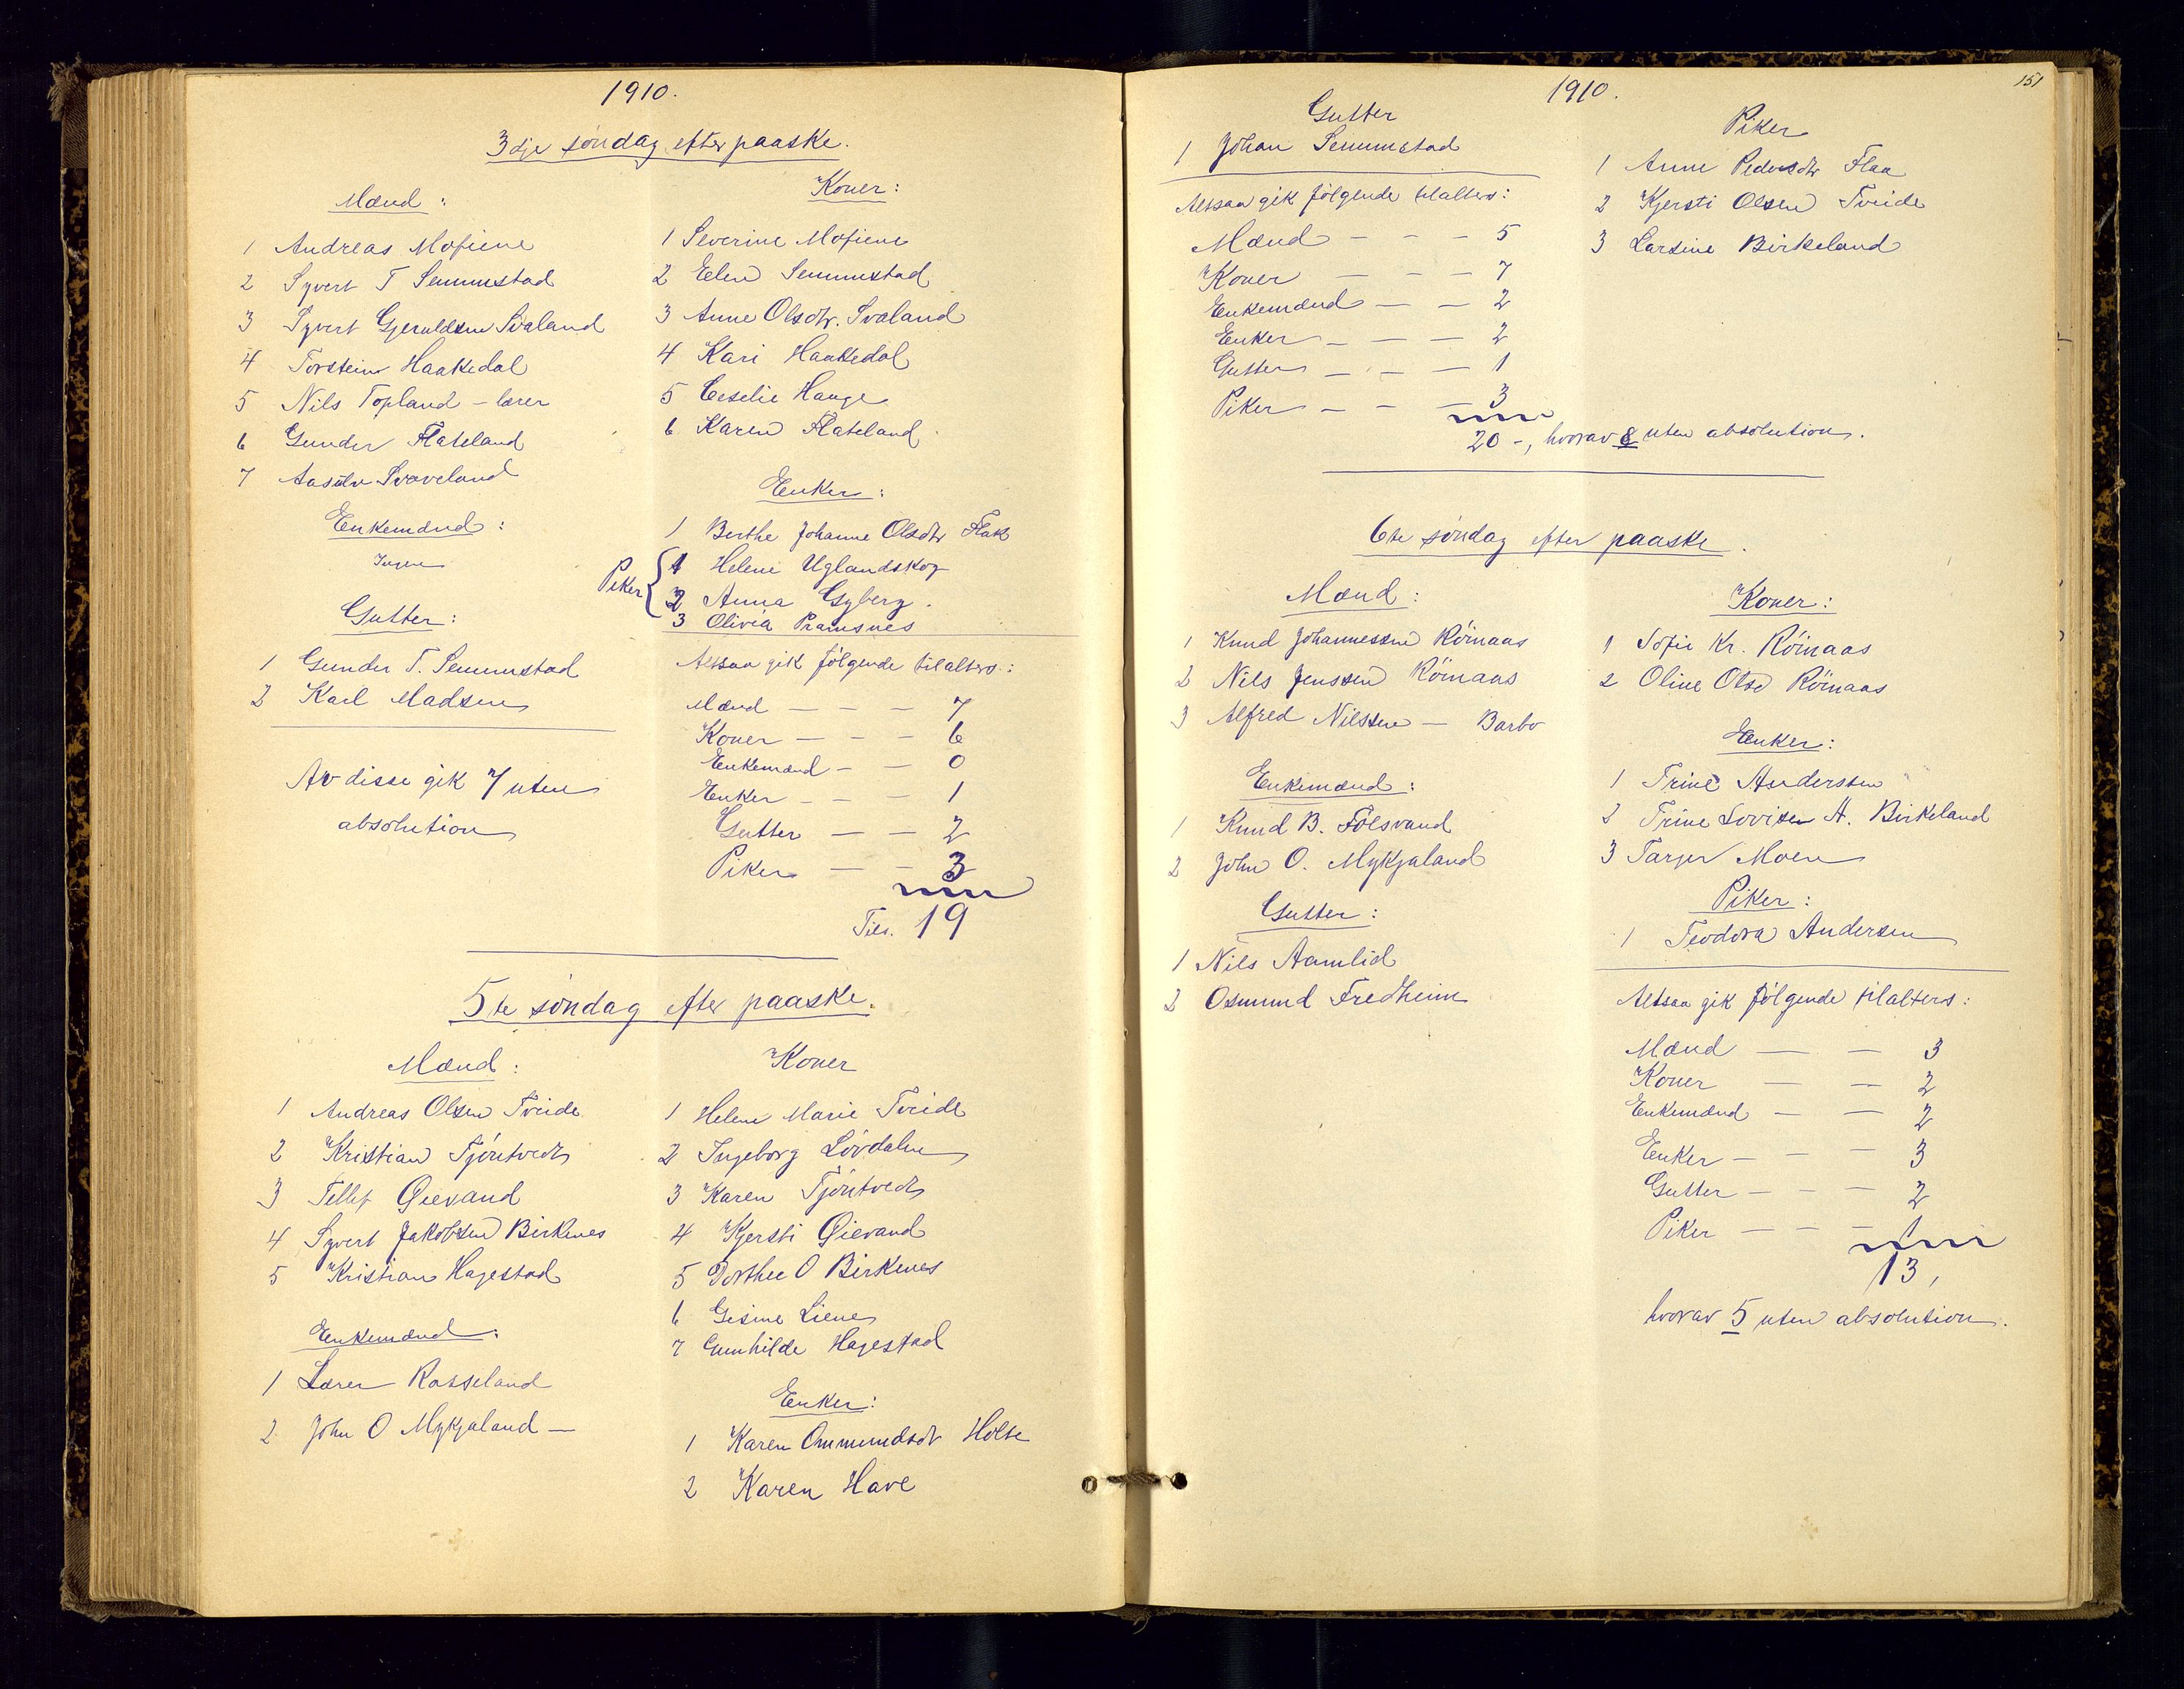 1910.
3dje søndag efter paaske.
Mænd:
1 Andreas Mosiene
2 Syvert T Senumstad
3 Syvert Gjeruldsen Svaland
4 Torstein Haakedal
5 Nils Topland - lærer
6 Gunder Flateland
7 Aasulv Svaveland
Enkemænd:
Ingen
Gutter:
1 Gunder T. Senumstad
2 Karl Madsen
Av disse gik 7 uten
absolution
Koner:
1 Severine Mosiene
2 Elen Senumstad
3 Anne Olsdtr. Svaland
4 Kari Haakedal
5 Ceselie Hauge
6 Karen Flateland
Enker:
1 Berthe Johanne Olsdtr Flak
Piker
1 Helene Uglandskog
2 Anna Gyberg.
3 Olivia Pramsnes
Altsaa gik følgende tilalters:
Mænd — — — 7
Koner — — — 6
Enkemænd — — 0
Enker — — — 1
Gutter — — 2
Piker — — 3
Tils. 19
5te søndag efter paaske.
Mænd:
1 Andreas Olsen Tveide
2 Kristian Tjøntvedt
3 Tellef Øievand
4 Syvert Jakobsen Birkenes
5 Kristian Hagestad
Enkemænd:
1 Lærer Rosseland
2 John O Mykjaland —
Koner
1 Helene Marie Tveide
2 Ingeborg Løvdalen
3 Karen Tjøntvedt
4 Kjersti Øievand
5 Dorthee O Birkenes
6 Gesine Liene
7 Gunhilde Hagestad
Enker:
1 Karen Ommundsdt Holte
2 Karen Have
151
1910.
Gutter
1 Johan Senumstad
Altsaa gik følgende tilalters:
Mænd — — — 5
Koner — — — 7
Enkemænd — — 2
Enker — — — 2
Gutter — — — 1
Piker — — — 3
20 -, hvorav 8 uten absolution.
Piker
1 Anne Pedersdtr Flaa
2 Kjersti Olsen Tveide
3 Larsine Birkeland
6te søndag efter paaske.
Mænd:
1 Knud Johannessen Röinaas
2 Nils Jenssen Röinaas
3 Alfred Nilssen — Barbo
Enkemænd:
1 Knud B. Fölsvand
2 John O. Mykjaland
Gutter:
1 Nils Aamlid
2 Osmund Fredheim
Koner:
1 Sofie Kr. Röinaas
2 Oline Olsd Röinaas
Enker:
1 Trine Andersen
2 Trine Lovise A. Birkeland
3 Tarjer Moen
Piker:
1 Teodora Andersen
Altsaa gik følgende tilalters:
Mænd — — 3
Koner — — 2
Enkemænd — — 2
Enker — — — 3
Gutter — — — 2
Piker — — — 1
13,
hvorav 5 uten absolution.